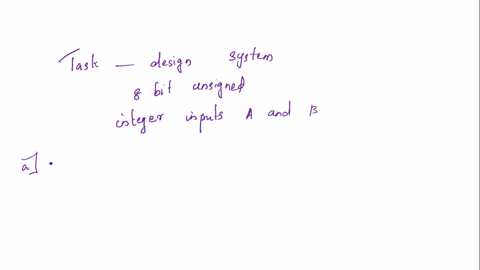 Task — design system
8 bit unsigned
integer inputs A and B
a] •